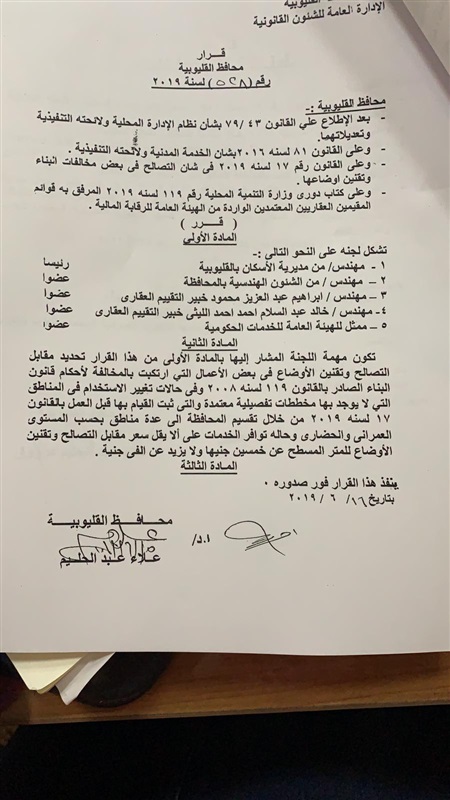 الإدارة العامة للشئون القانونية
قـــرار
محافظ القليوبية
رقم (٥٢٨) لسنة ٢٠١٩
محافظ القليوبية :-
- بعد الإطلاع علي القانون ٤٣ /٧٩ بشأن نظام الإدارة المحلية ولائحته التنفيذية
وتعديلاتهما.
- وعلى القانون ٨١ لسنه ٢٠١٦بشان الخدمة المدنية ولائحته التنفيذية .
- وعلى القانون رقم ١٧ لسنه ٢٠١٩ فى شان التصالح في بعض مخالفات البناء
وتقنين اوضاعها .
- وعلى كتاب دورى وزارة التنمية المحلية رقم ١١٩ لسنه ٢٠١٩ المرفق به قوائم
المقيمين العقاريين المعتمدين الواردة من الهيئة العامة للرقابة المالية .
( قـــرر )
المادة الأولى
تشكل لجنه على النحو التالى :-
١ – مهندس/ من مديرية الأسكان بالقليوبية رئيسا
٢ – مهندس / من الشئون الهندسية بالمحافظة عضوا
٣ – مهندس / ابراهيم عبد العزيز محمود خبير التقييم العقارى عضوا
٤- مهندس / خالد عبد السلام احمد احمد الليثى خبير التقييم العقارى عضوا
٥ – ممثل للهيئة العامة للخدمات الحكومية عضوا
المادة الثانية
تكون مهمة اللجنة المشار إليها بالمادة الأولى من هذا القرار تحديد مقابل
التصالح وتقنين الأوضاع فى بعض الأعمال التي ارتكبت بالمخالفة لأحكام قانون
البناء الصادر بالقانون ١١٩ لسنه ٢٠٠٨ وفى حالات تغيير الاستخدام فى المناطق
التي لا يوجد بها مخططات تفصيلية معتمدة والتى ثبت القيام بها قبل العمل بالقانون
١٧ لسنه ٢٠١٩ من خلال تقسيم المحافظة الى عدة مناطق بحسب المستوى
العمرانى والحضارى وحاله توافر الخدمات على ألا يقل سعر مقابل التصالح وتقنين
الأوضاع للمتر المسطح عن خمسين جنيها ولا يزيد عن الفى جنية .
المادة الثالثة
ينفذ هذا القرار فور صدوره .
بتاريخ ١٦/ ٦ / ٢٠١٩
محافظ القليوبية
ا.د/
علاء عبد الحليم